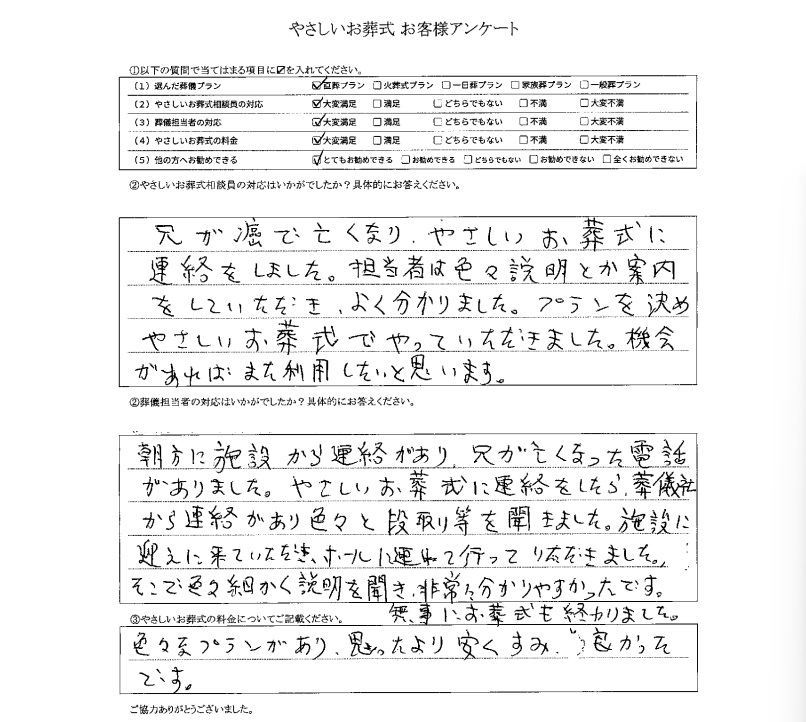 やさしいお葬式 お客様アンケート
①以下の質問で当てはまる項目に☑を入れてください。
（1）選んだ葬儀プラン ☑直葬プラン □火葬式プラン □一日葬プラン □家族葬プラン □一般葬プラン
（2）やさしいお葬式相談員の対応 ☑大変満足 □満足 □どちらでもない □不満 □大変不満
（3）葬儀担当者の対応 ☑大変満足 □満足 □どちらでもない □不満 □大変不満
（4）やさしいお葬式の料金 ☑大変満足 □満足 □どちらでもない □不満 □大変不満
（5）他の方へお勧めできる ☑とてもお勧めできる □お勧めできる □どちらでもない □お勧めできない □全くお勧めできない
②やさしいお葬式相談員の対応はいかがでしたか？具体的にお答えください。
兄が癌で亡くなり、やさしいお葬式に
連絡をしました。担当者は色々説明とか案内
をしていただき、よく分かりました。プランを決め
やさしいお葬式でやっていただきました。機会
があればまた利用したいと思います。
②葬儀担当者の対応はいかがでしたか？具体的にお答えください。
朝方に施設から連絡があり、兄が亡くなった電話
がありました。やさしいお葬式に連絡をしたら、葬儀社
から連絡があり色々と段取り等を聞きました。施設に
迎えに来ていただき、ホールに連れて行っていただきました。
そこで色々細かく説明を聞き、非常に分かりやすかったです。
無事にお葬式も終わりました。
③やさしいお葬式の料金についてご記載ください。
色々なプランがあり、思ったより安くすみ、良かった
です。
ご協力ありがとうございました。